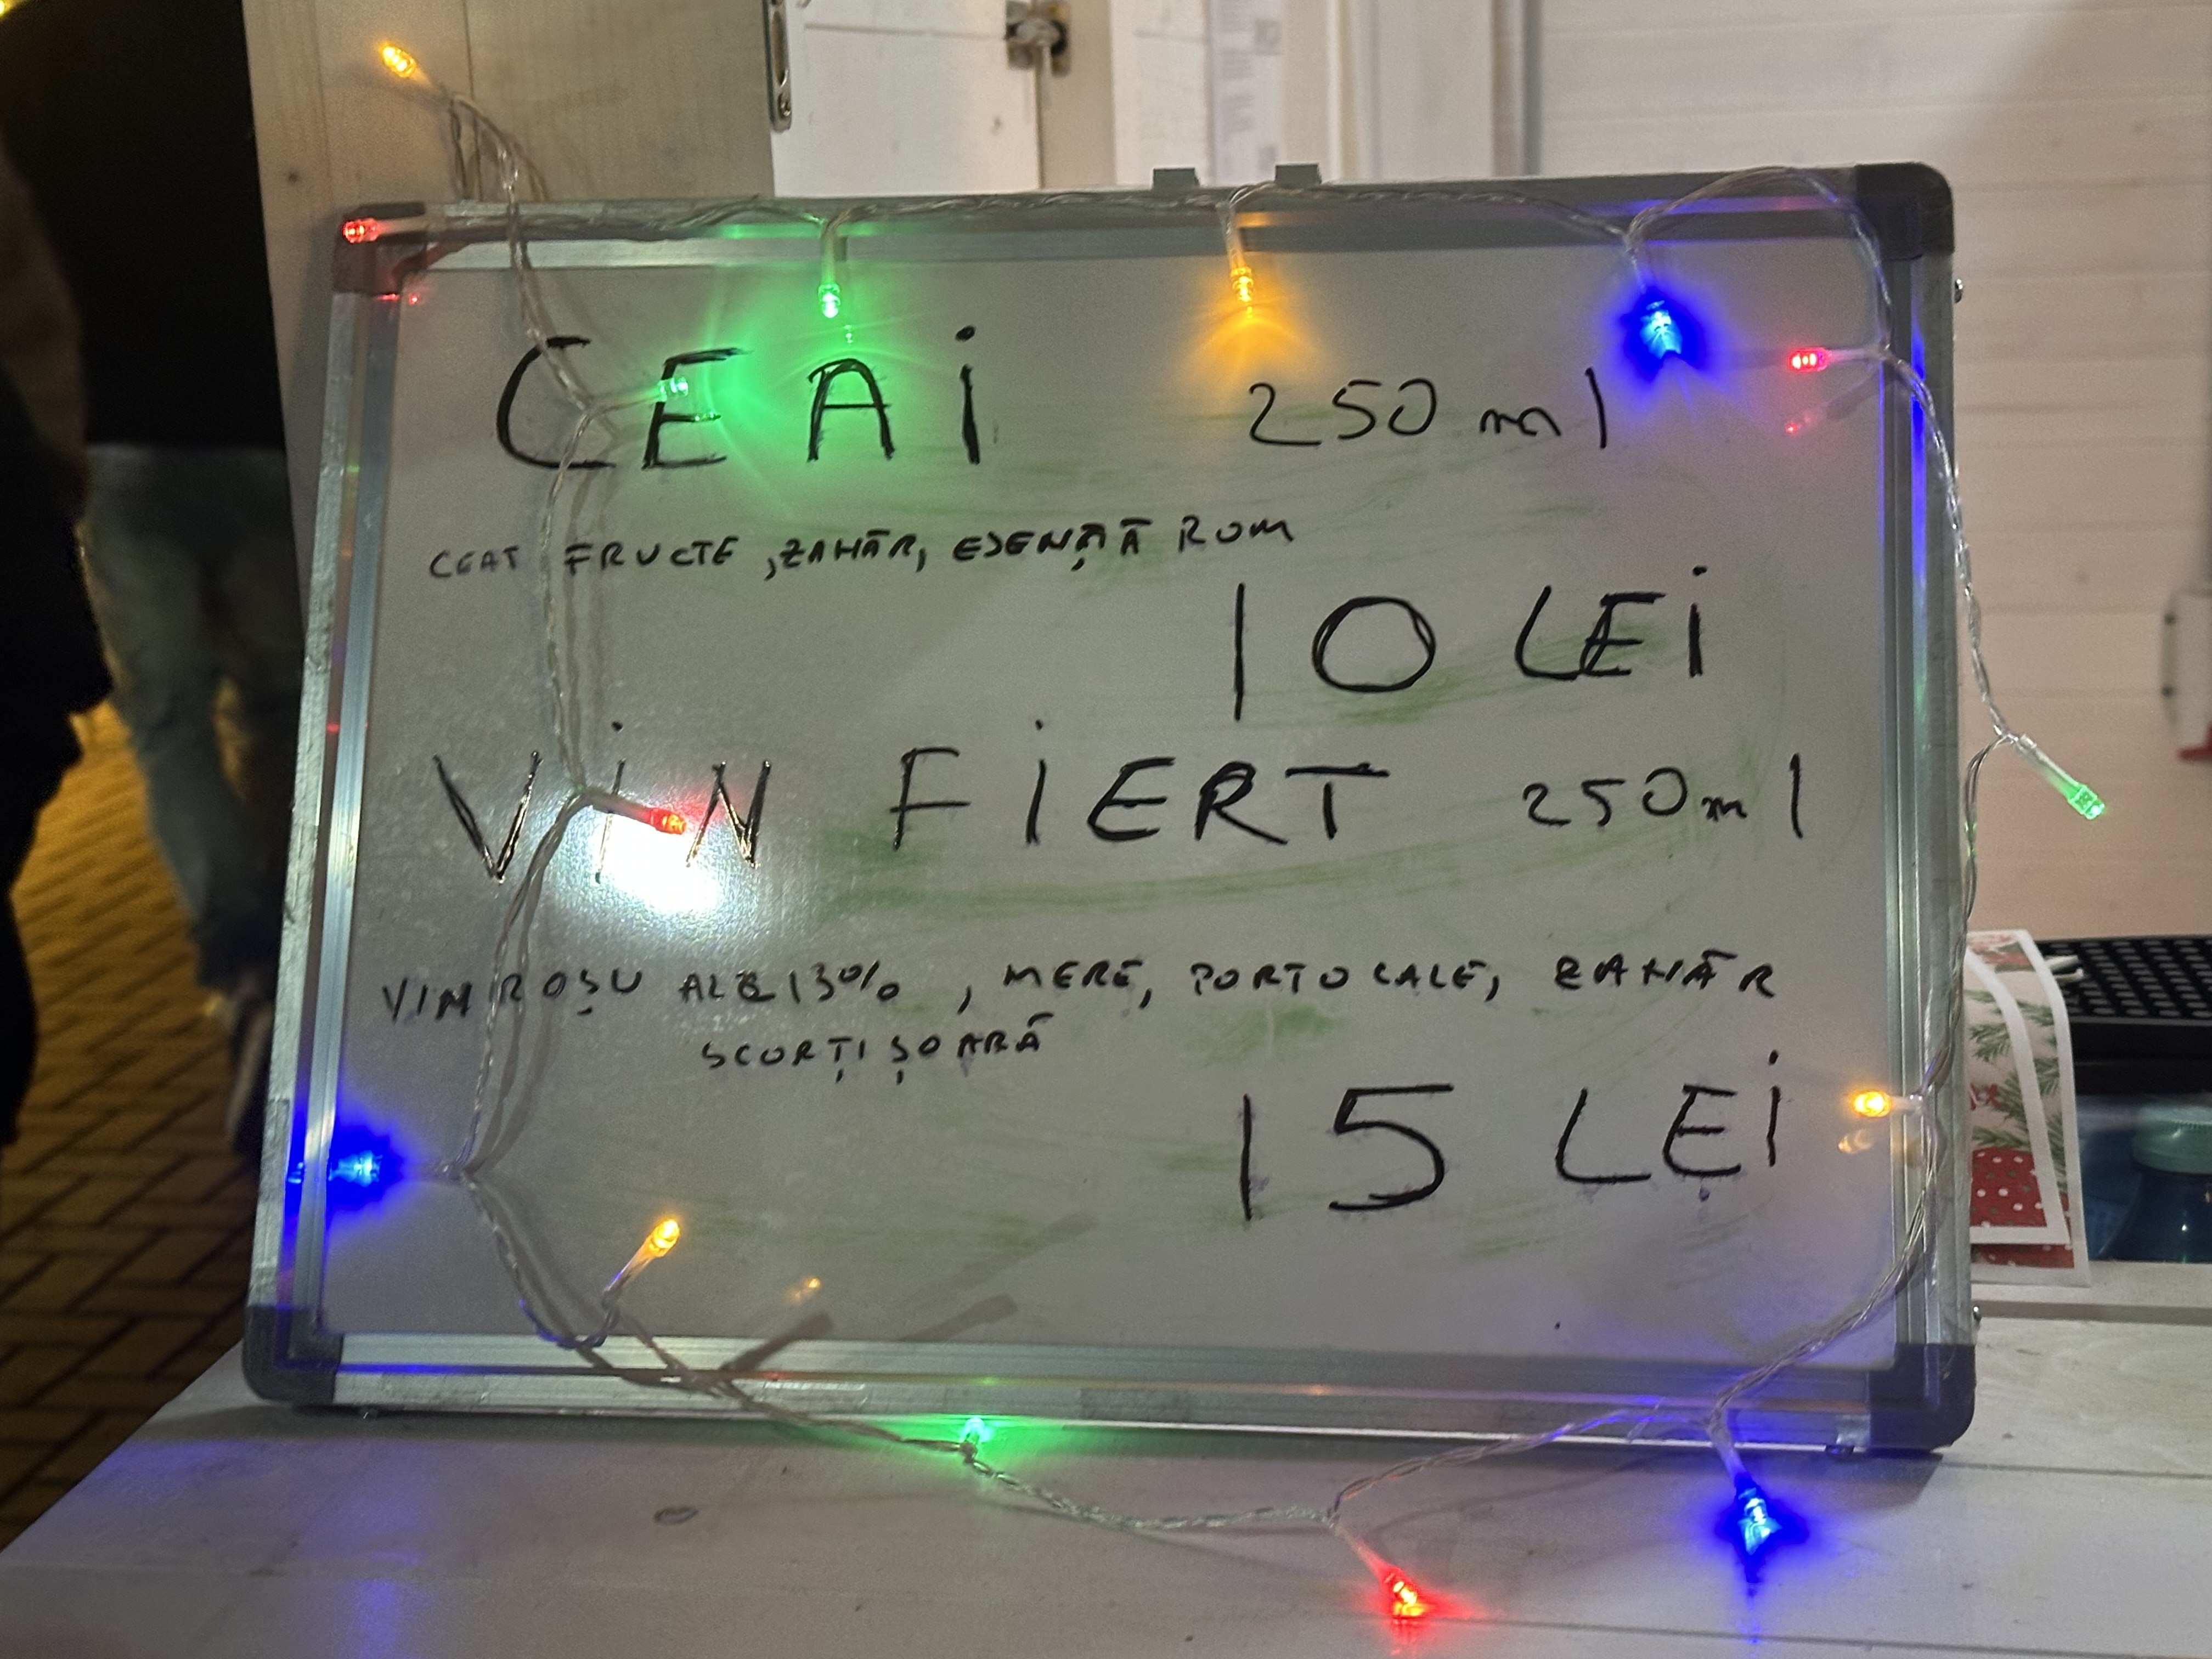 CEAI 250 ml
CEAI FRUCTE, ZAHĂR, ESENȚĂ ROM
10 LEI
VIN FIERT 250 ml
VIN ROȘU ALC 13%, MERE, PORTOCALE, ZAHĂR
SCORȚIȘOARĂ
15 LEI